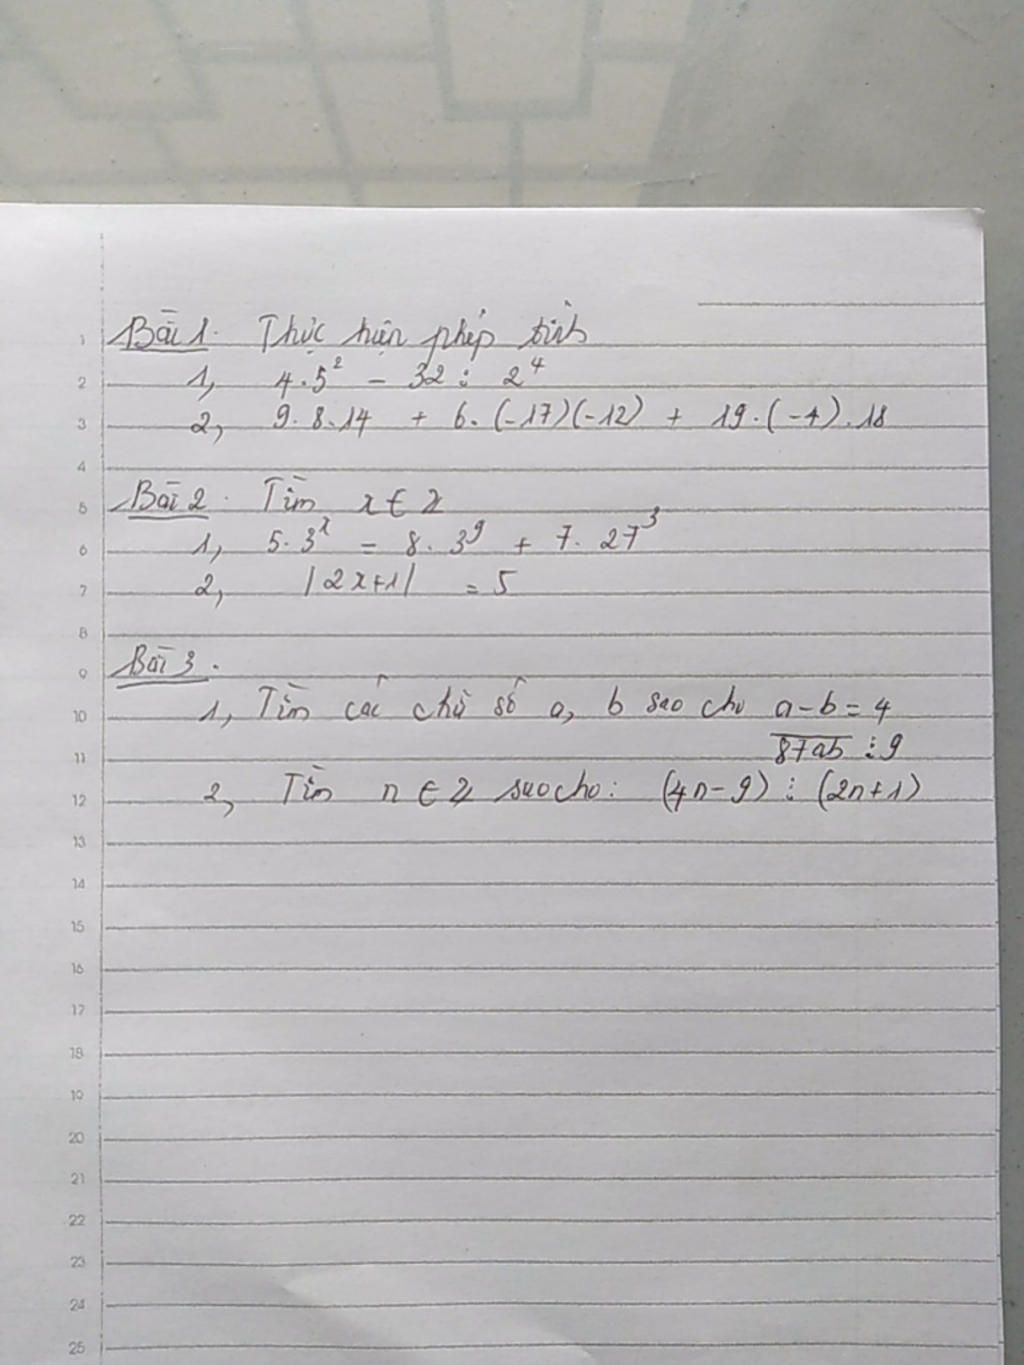 Bài 1. Thực hiện phép tính
1, 4.5² - 32 : 2⁴
2, 9.8.14 + 6.(-17)(-12) + 19.(-4).18
Bài 2. Tìm x ∈ Z
1, 5.3ˣ = 8.3⁹ + 7.27³
2, |2x+1| = 5
Bài 3.
1, Tìm các chữ số a, b sao cho a-b = 4
87ab ⋮ 9
2, Tìm n ∈ Z sao cho: (4n-9) ⋮ (2n+1)
1
2
3
4
5
6
7
8
9
10
11
12
13
14
15
16
17
18
19
20
21
22
23
24
25